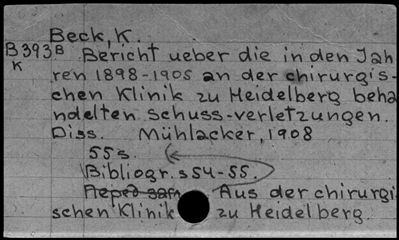 Beck, K.
B393B Bericht ueber die in den Jah
K ren 1898-1905 an der chirurgis-
chen Klinik zu Heidelberg beha
ndelten Schuss-verletzungen.
Diss. Mühlacker, 1908
55 s.
Bibliogr. s 54-55.
Aus der chirurgi
schen Klinik zu Heidelberg.